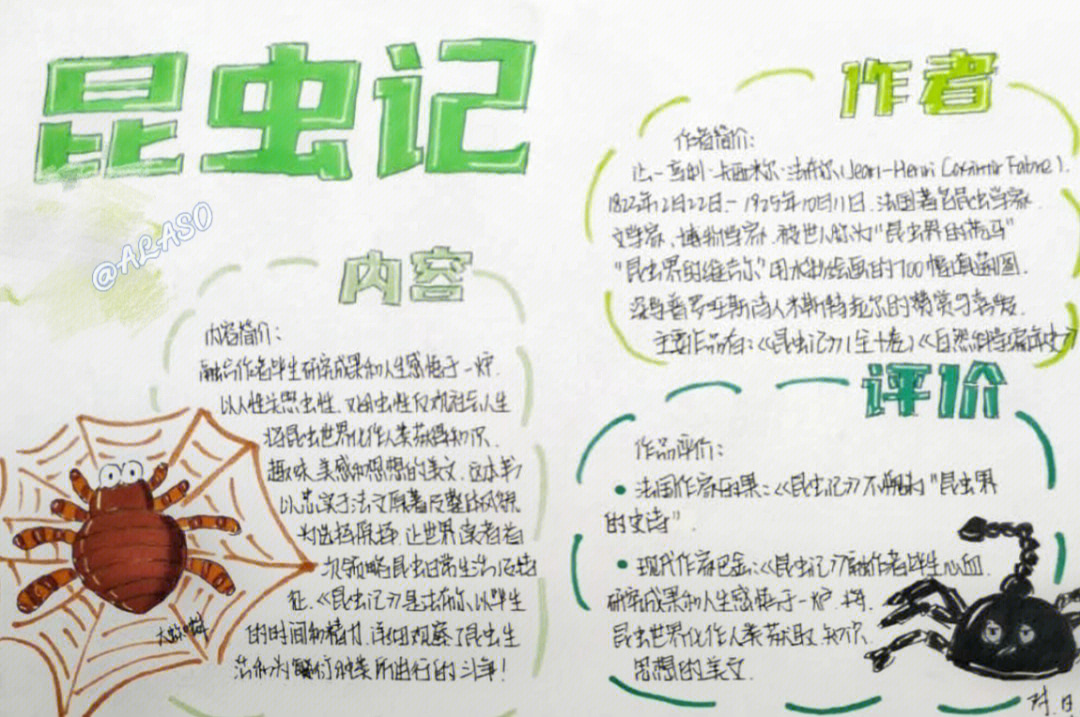 昆虫记
@ALASO
内容
内容简介：
融合作者毕生研究成果和人生感悟于一炉.
以人性关照虫性. 又用虫性反观社会人生
将昆虫世界化作人类获得知识.
趣味. 美感和思想的美文. 这本书
以忠实于法文原著反整体风貌
为选择原择. 让世界读者首
次领略昆虫日常生活反特
征. 《昆虫记》是法布尔以毕生
的时间和精力. 详细观察了昆虫生
活和为繁衍种类所进行的斗争！
作者
作者简介：
让-亨利·卡西米尔·法布尔(Jean-Henri Casimir Fabre).
1823年12月22日-1925年10月11日. 法国著名昆虫学家.
文学家. 博物学家. 被世人称为"昆虫界的荷马"
"昆虫界的维吉尔" 用水彩绘画的700幅真菌图.
深得普罗旺斯诗人米斯特拉尔的赞赏与喜爱.
主要作品有：《昆虫记》(全十卷)《自然科学编年史》
评价
作品评价：
法国作家雨果：《昆虫记》不愧为"昆虫界
的史诗".
现代作家巴金：《昆虫记》融作者毕生心血.
研究成果和人生感悟于一炉. 将
昆虫世界化作人类获取知识.
思想的美文.